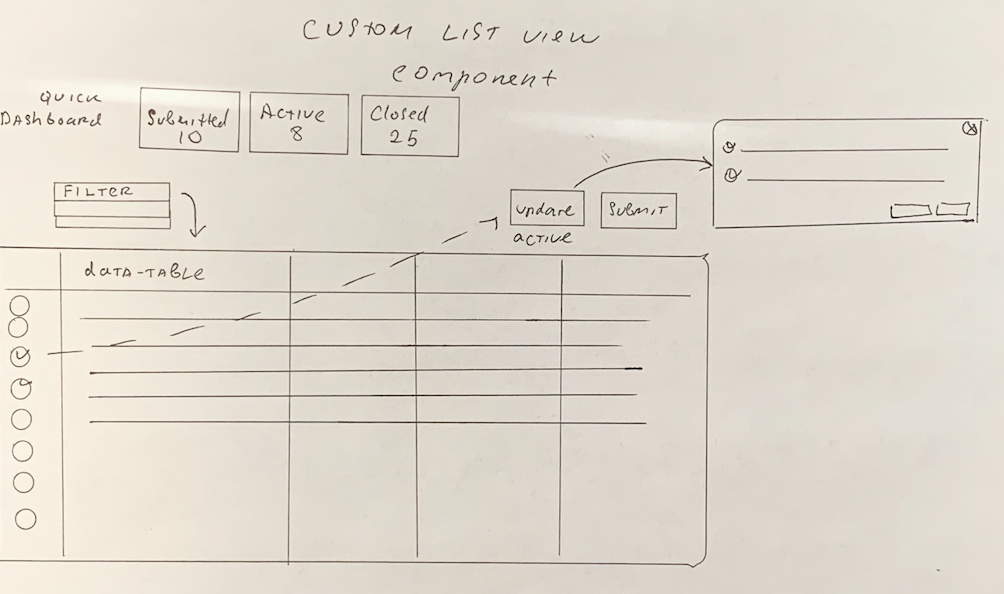 CUSTOM LIST VIEW
COMPONENT
QUICK
DASHBOARD
Submitted
10
ACTIVE
8
Closed
25
FILTER
UPDATE
SUBMIT
ACTIVE
DATA-TABLE